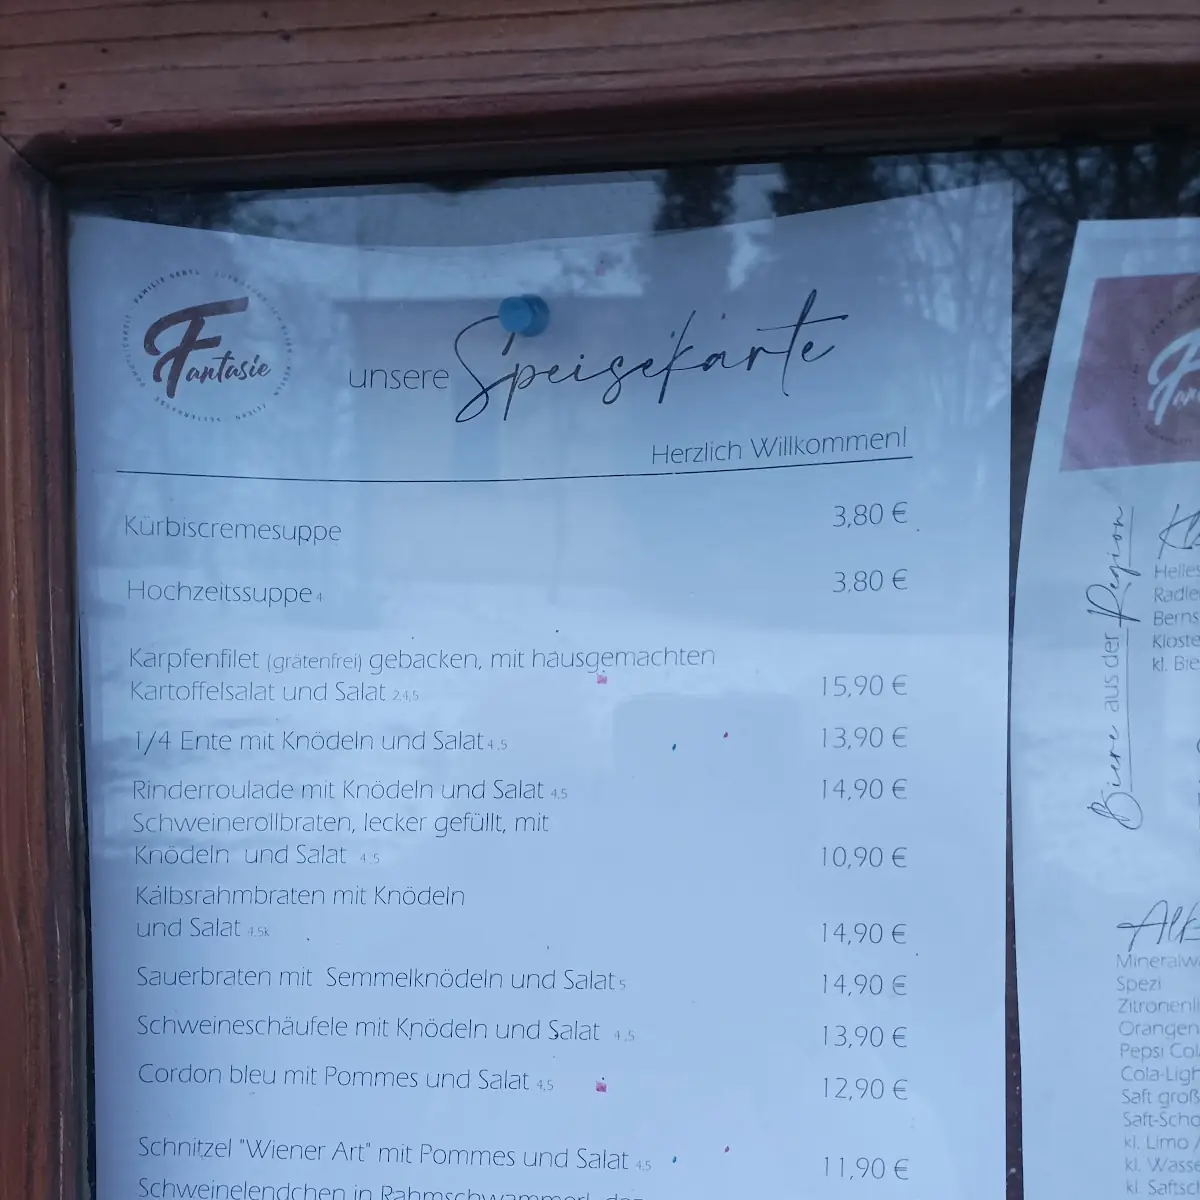 Fantasie
unsere Speisekarte
Herzlich Willkommen!
Kürbiscremesuppe 3,80 €
Hochzeitssuppe 4 3,80 €
Karpfenfilet (grätenfrei) gebacken, mit hausgemachten
Kartoffelsalat und Salat 2,4,5 15,90 €
1/4 Ente mit Knödeln und Salat 4,5 13,90 €
Rinderroulade mit Knödeln und Salat 4,5 14,90 €
Schweinerollbraten, lecker gefüllt, mit
Knödeln und Salat 4,5 10,90 €
Kalbsrahmbraten mit Knödeln
und Salat 4,5k 14,90 €
Sauerbraten mit Semmelknödeln und Salat 5 14,90 €
Schweineschäufele mit Knödeln und Salat 4,5 13,90 €
Cordon bleu mit Pommes und Salat 4,5 12,90 €
Schnitzel "Wiener Art" mit Pommes und Salat 4,5 11,90 €
Schweinelendchen in Rahmschwammerl, daz
Biere aus der Region
Helles
Radle
Berns
Kloste
kl. Bie
Alk
Mineralwa
Spezi
Zitronenli
Orangen
Pepsi Col
Cola-Ligh
Saft groß
Saft-Scho
kl. Limo /
kl. Wasse
kl. Saftsc